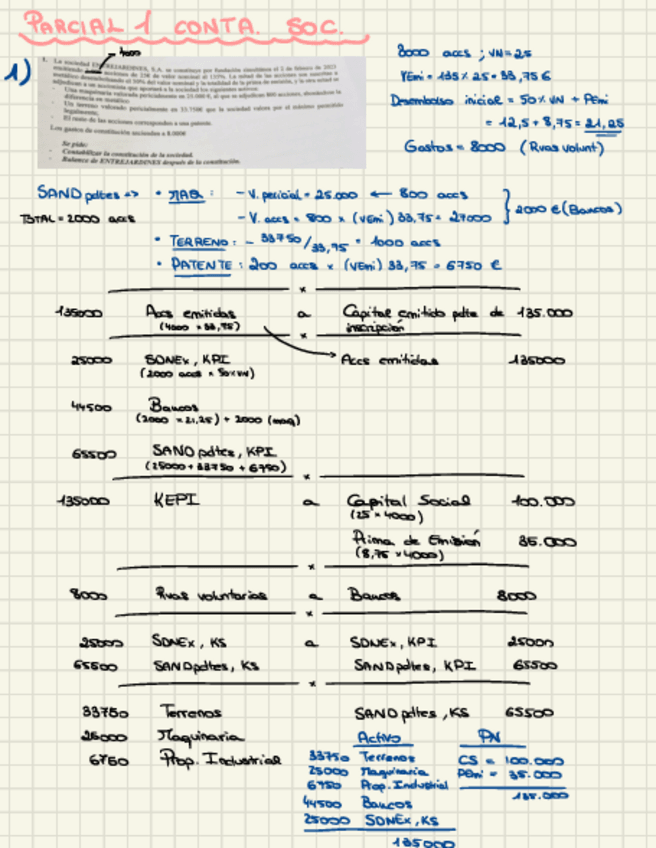 PARCIAL 1 CONTA. SOC.
1)
4000
1. La sociedad ENTREJARDINES, S.A. se constituye por fundación simultánea el 2 de febrero de 2023
acciones de 25€ de valor nominal al 135%. La mitad de las acciones son suscritas a
metálico desembolsando el 50% del valor nominal y la totalidad de la prima de emisión, y la otra mitad se
adjudican a un accionista que aportará a la sociedad los siguientes activos:
- Una maquinaria valorada pericialmente en 25.000 €, al que se adjudican 800 acciones, abonándose la
diferencia en metálico.
- Un terreno valorado pericialmente en 33.750€ que la sociedad valora por el máximo permitido
legalmente.
- El resto de las acciones corresponden a una patente.
Los gastos de constitución ascienden a 8.000€
Se pide:
- Contabilizar la constitución de la sociedad.
- Balance de ENTREJARDINES después de la constitución.
8000 accs ; VN=25
VEmi = 135% 25 = 33,75€
Desembolso inicial = 50% VN + PEmi
= 12,5 + 8,75 = 21,25
Gastos = 8000 (Rvas volunt)
SAND pdtes => • MAQ: - V. pericial = 25.000 ← 800 accs
TOTAL = 2000 accs - V. accs = 800 × (VEmi) 33,75 = 27000 } 2000 € (Bancos)
• TERRENO: - 33750/33,75 = 1000 accs
• PATENTE: 200 accs × (VEmi) 33,75 = 6750 €
x
135000 Accs emitidas a Capital emitido pdte de 135.000
(4000 × 33,75) inscripción
x
25000 SDNEx, KPI Accs emitidas 135000
(2000 accs × 50%VN)
44500 Bancos
(2000 × 21,25) + 2000 (maq)
65500 SAND pdtes, KPI
(25000 + 33750 + 6750)
x
135000 KEPI a Capital Social 100.000
(25 × 4000)
Prima de Emisión 35.000
(8,75 × 4000)
x
8000 Rvas voluntarias a Bancos 8000
x
25000 SDNEx, KS a SDNEx, KPI 25000
65500 SANDpdtes, KS SANDpdtes, KPI 65500
x
33750 Terrenos SAND pdtes, KS 65500
25000 Maquinaria
6750 Prop. Industrial
Activo PN
33750 Terrenos CS = 100.000
25000 Maquinaria PEmi = 35.000
6750 Prop. Industrial 135.000
44500 Bancos
25000 SDNEx, KS
135000